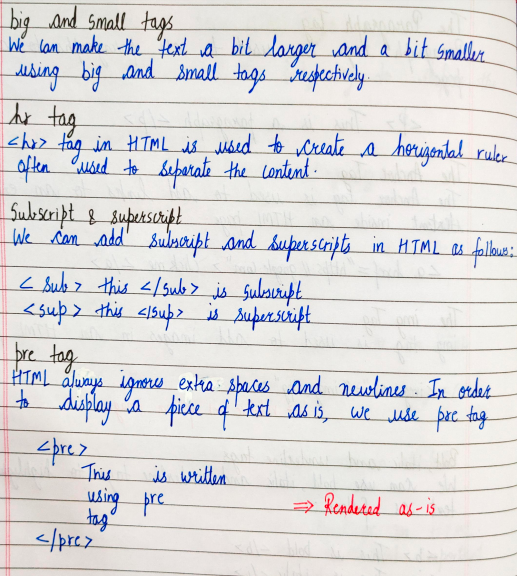 big and small tags
We can make the text a bit larger and a bit smaller
using big and small tags respectively.
hr tag
<hr> tag in HTML is used to create a horizontal ruler
often used to separate the content.
Subscript & superscript
We can add subscript and superscripts in HTML as follows:
<sub> this </sub> is subscript
<sup> this </sup> is superscript
pre tag
HTML always ignores extra spaces and newlines. In order
to display a piece of text as is, we use pre tag
<pre>
This is written
using pre ⇒ Rendered as-is
tag
</pre>